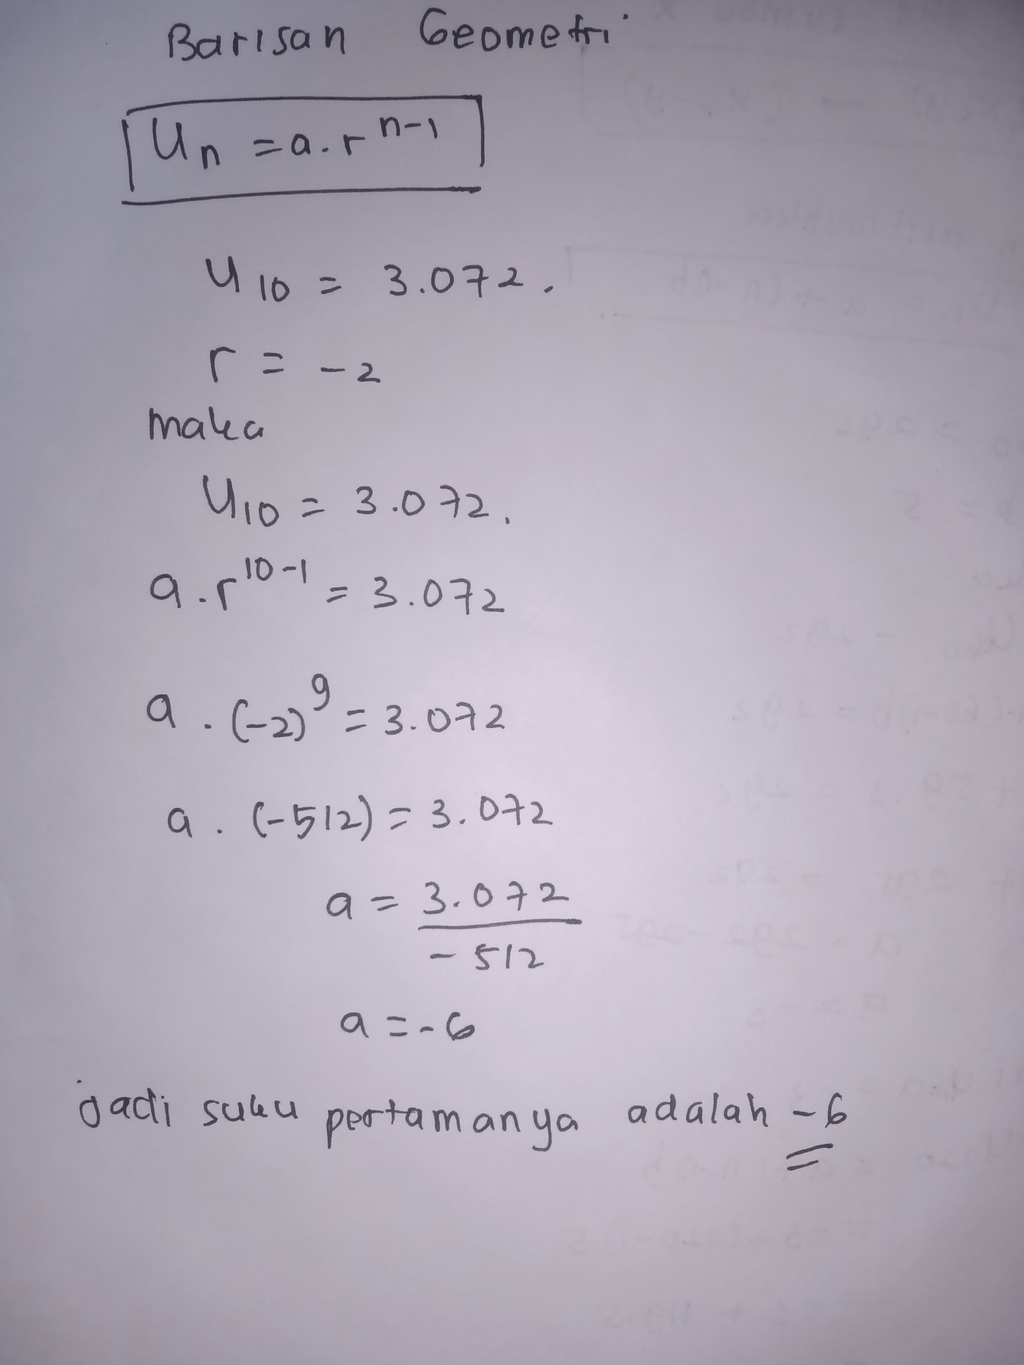 Barisan Geometri
Un = a . r^n-1
U10 = 3.072.
r = -2
maka
U10 = 3.072.
a . r^10-1 = 3.072
a . (-2)^9 = 3.072
a . (-512) = 3.072
a = 3.072
-512
a = -6
jadi suku pertamanya adalah -6